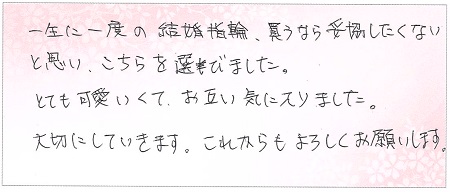 一生に一度の結婚指輪、買うなら妥協したくない
と思い、こちらを選びました。
とても可愛いくて、お互い気に入りました。
大切にしていきます。これからもよろしくお願いします。